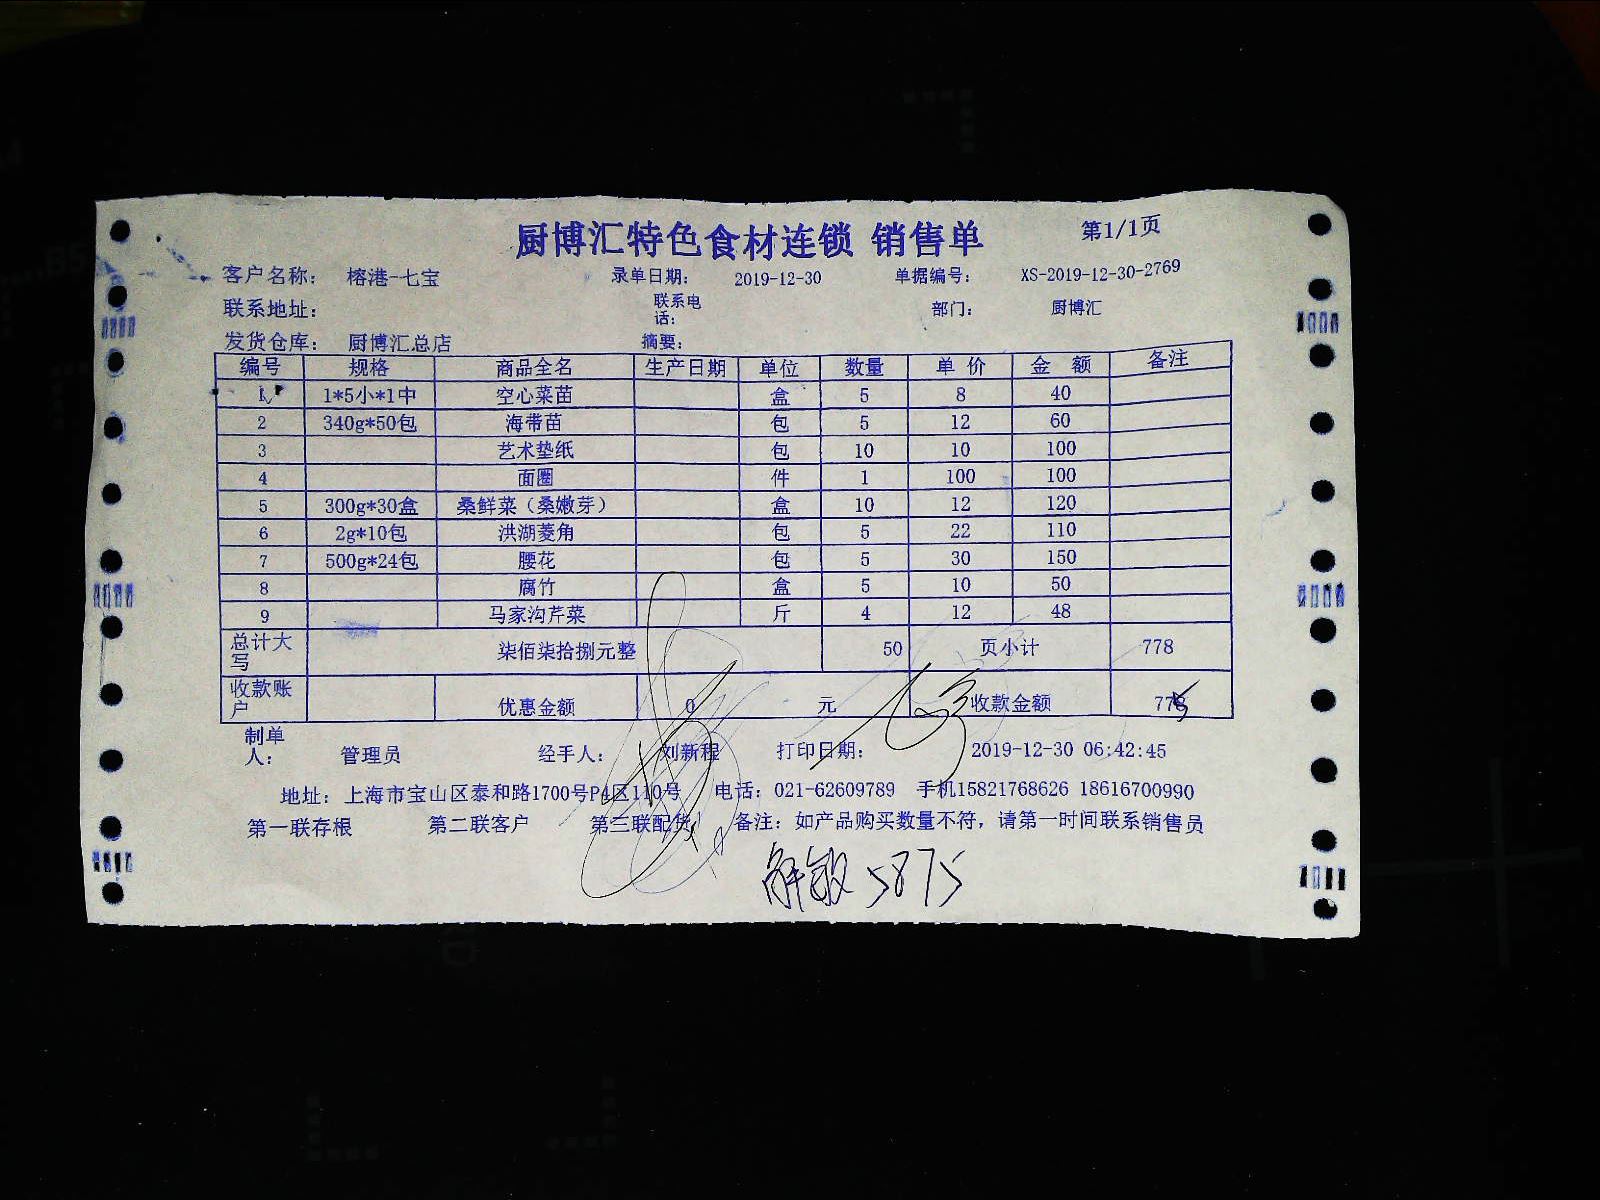 厨博汇特色食材连锁 销售单 第1/1页
客户名称： 榕港-七宝 录单日期： 2019-12-30 单据编号： XS-2019-12-30-2769
联系地址： 联系电话： 部门： 厨博汇
发货仓库： 厨博汇总店 摘要：
编号 规格 商品全名 生产日期 单位 数量 单价 金额 备注
1 1*5小*1中 空心菜苗 盒 5 8 40
2 340g*50包 海带苗 包 5 12 60
3 艺术垫纸 包 10 10 100
4 面圈 件 1 100 100
5 300g*30盒 桑鲜菜（桑嫩芽） 盒 10 12 120
6 2g*10包 洪湖菱角 包 5 22 110
7 500g*24包 腰花 包 5 30 150
8 腐竹 盒 5 10 50
9 马家沟芹菜 斤 4 12 48
总计大写 柒佰柒拾捌元整 50 页小计 778
收款账户 优惠金额 0 元 收款金额 778
制单人： 管理员 经手人： 刘新程 打印日期： 2019-12-30 06:42:45
地址：上海市宝山区泰和路1700号P4区110号 电话：021-62609789 手机15821768626 18616700990
第一联存根 第二联客户 第三联配货 备注：如产品购买数量不符，请第一时间联系销售员
解敏 5875